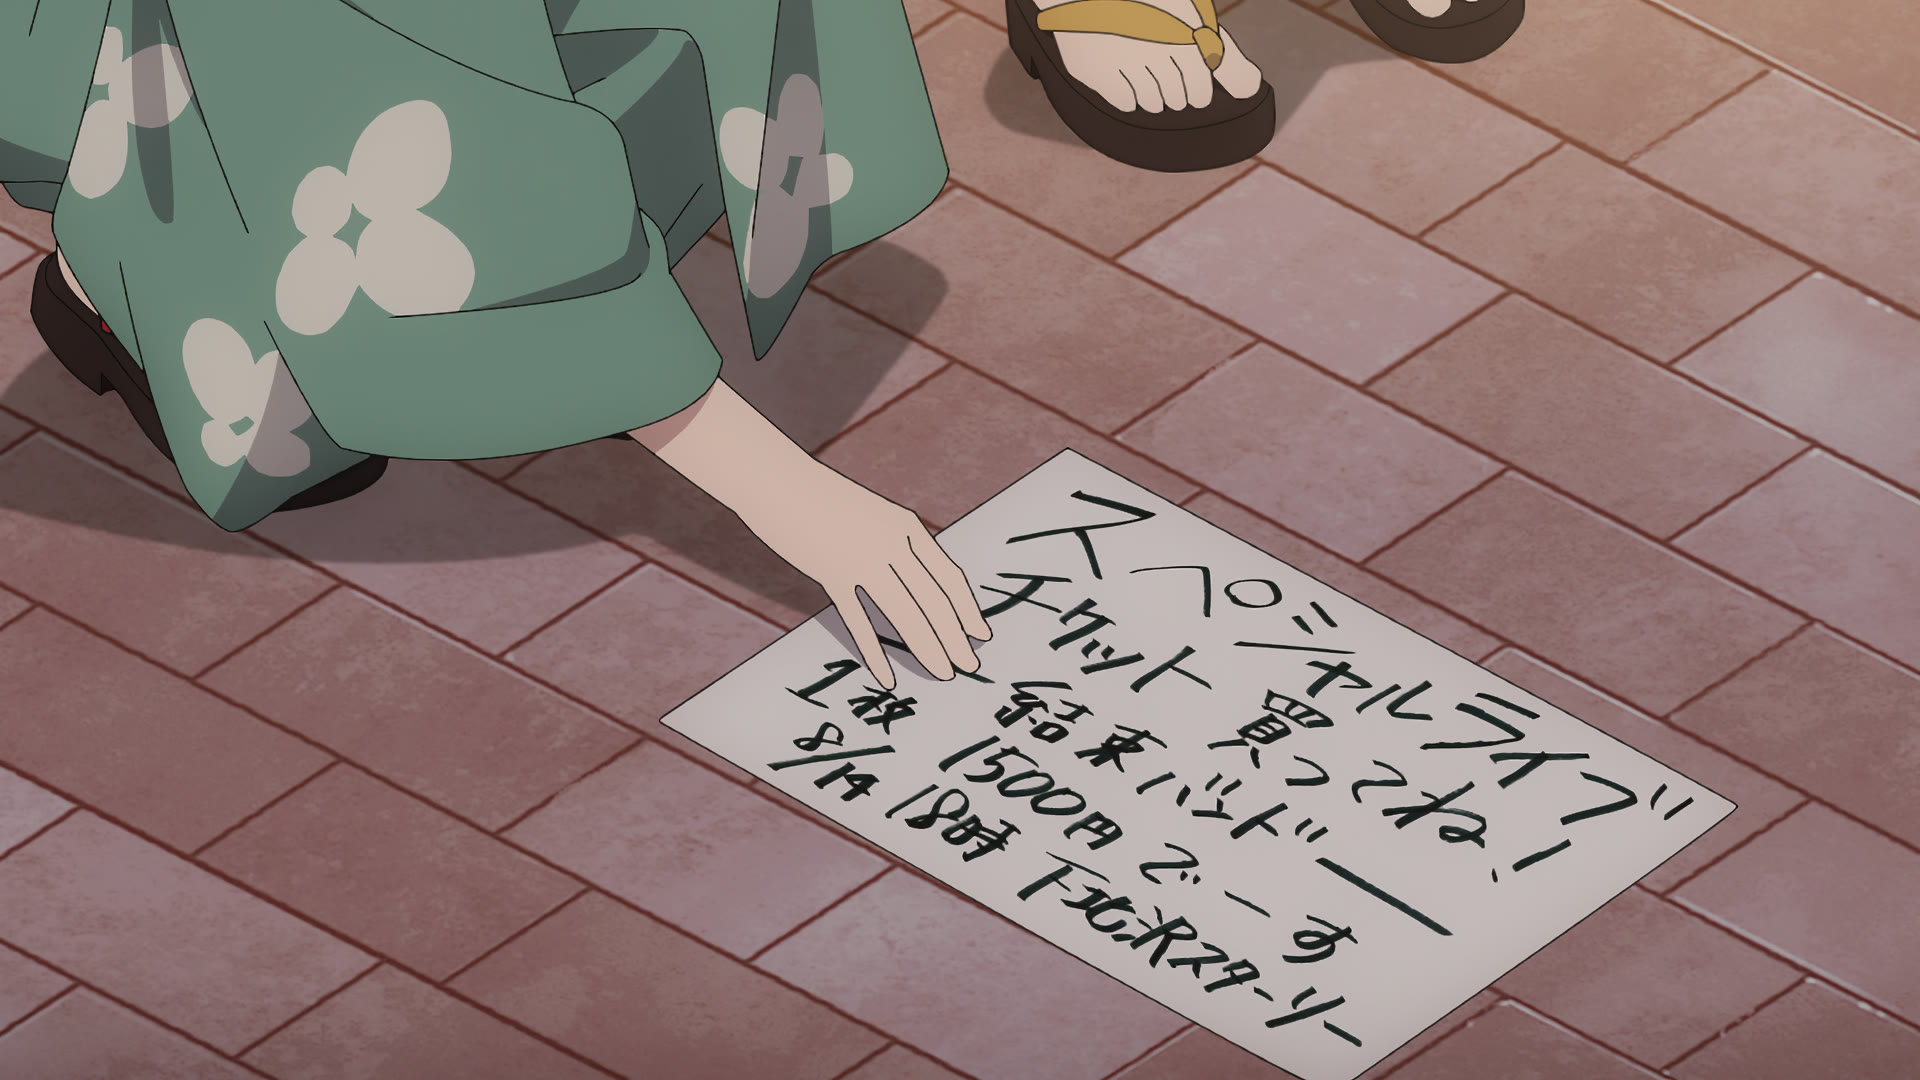 スペシャルライブ
チケット 買ってね!
ー 結束バンド ー
1枚 1500円 でーす
8/14 18時 下北沢スターリー